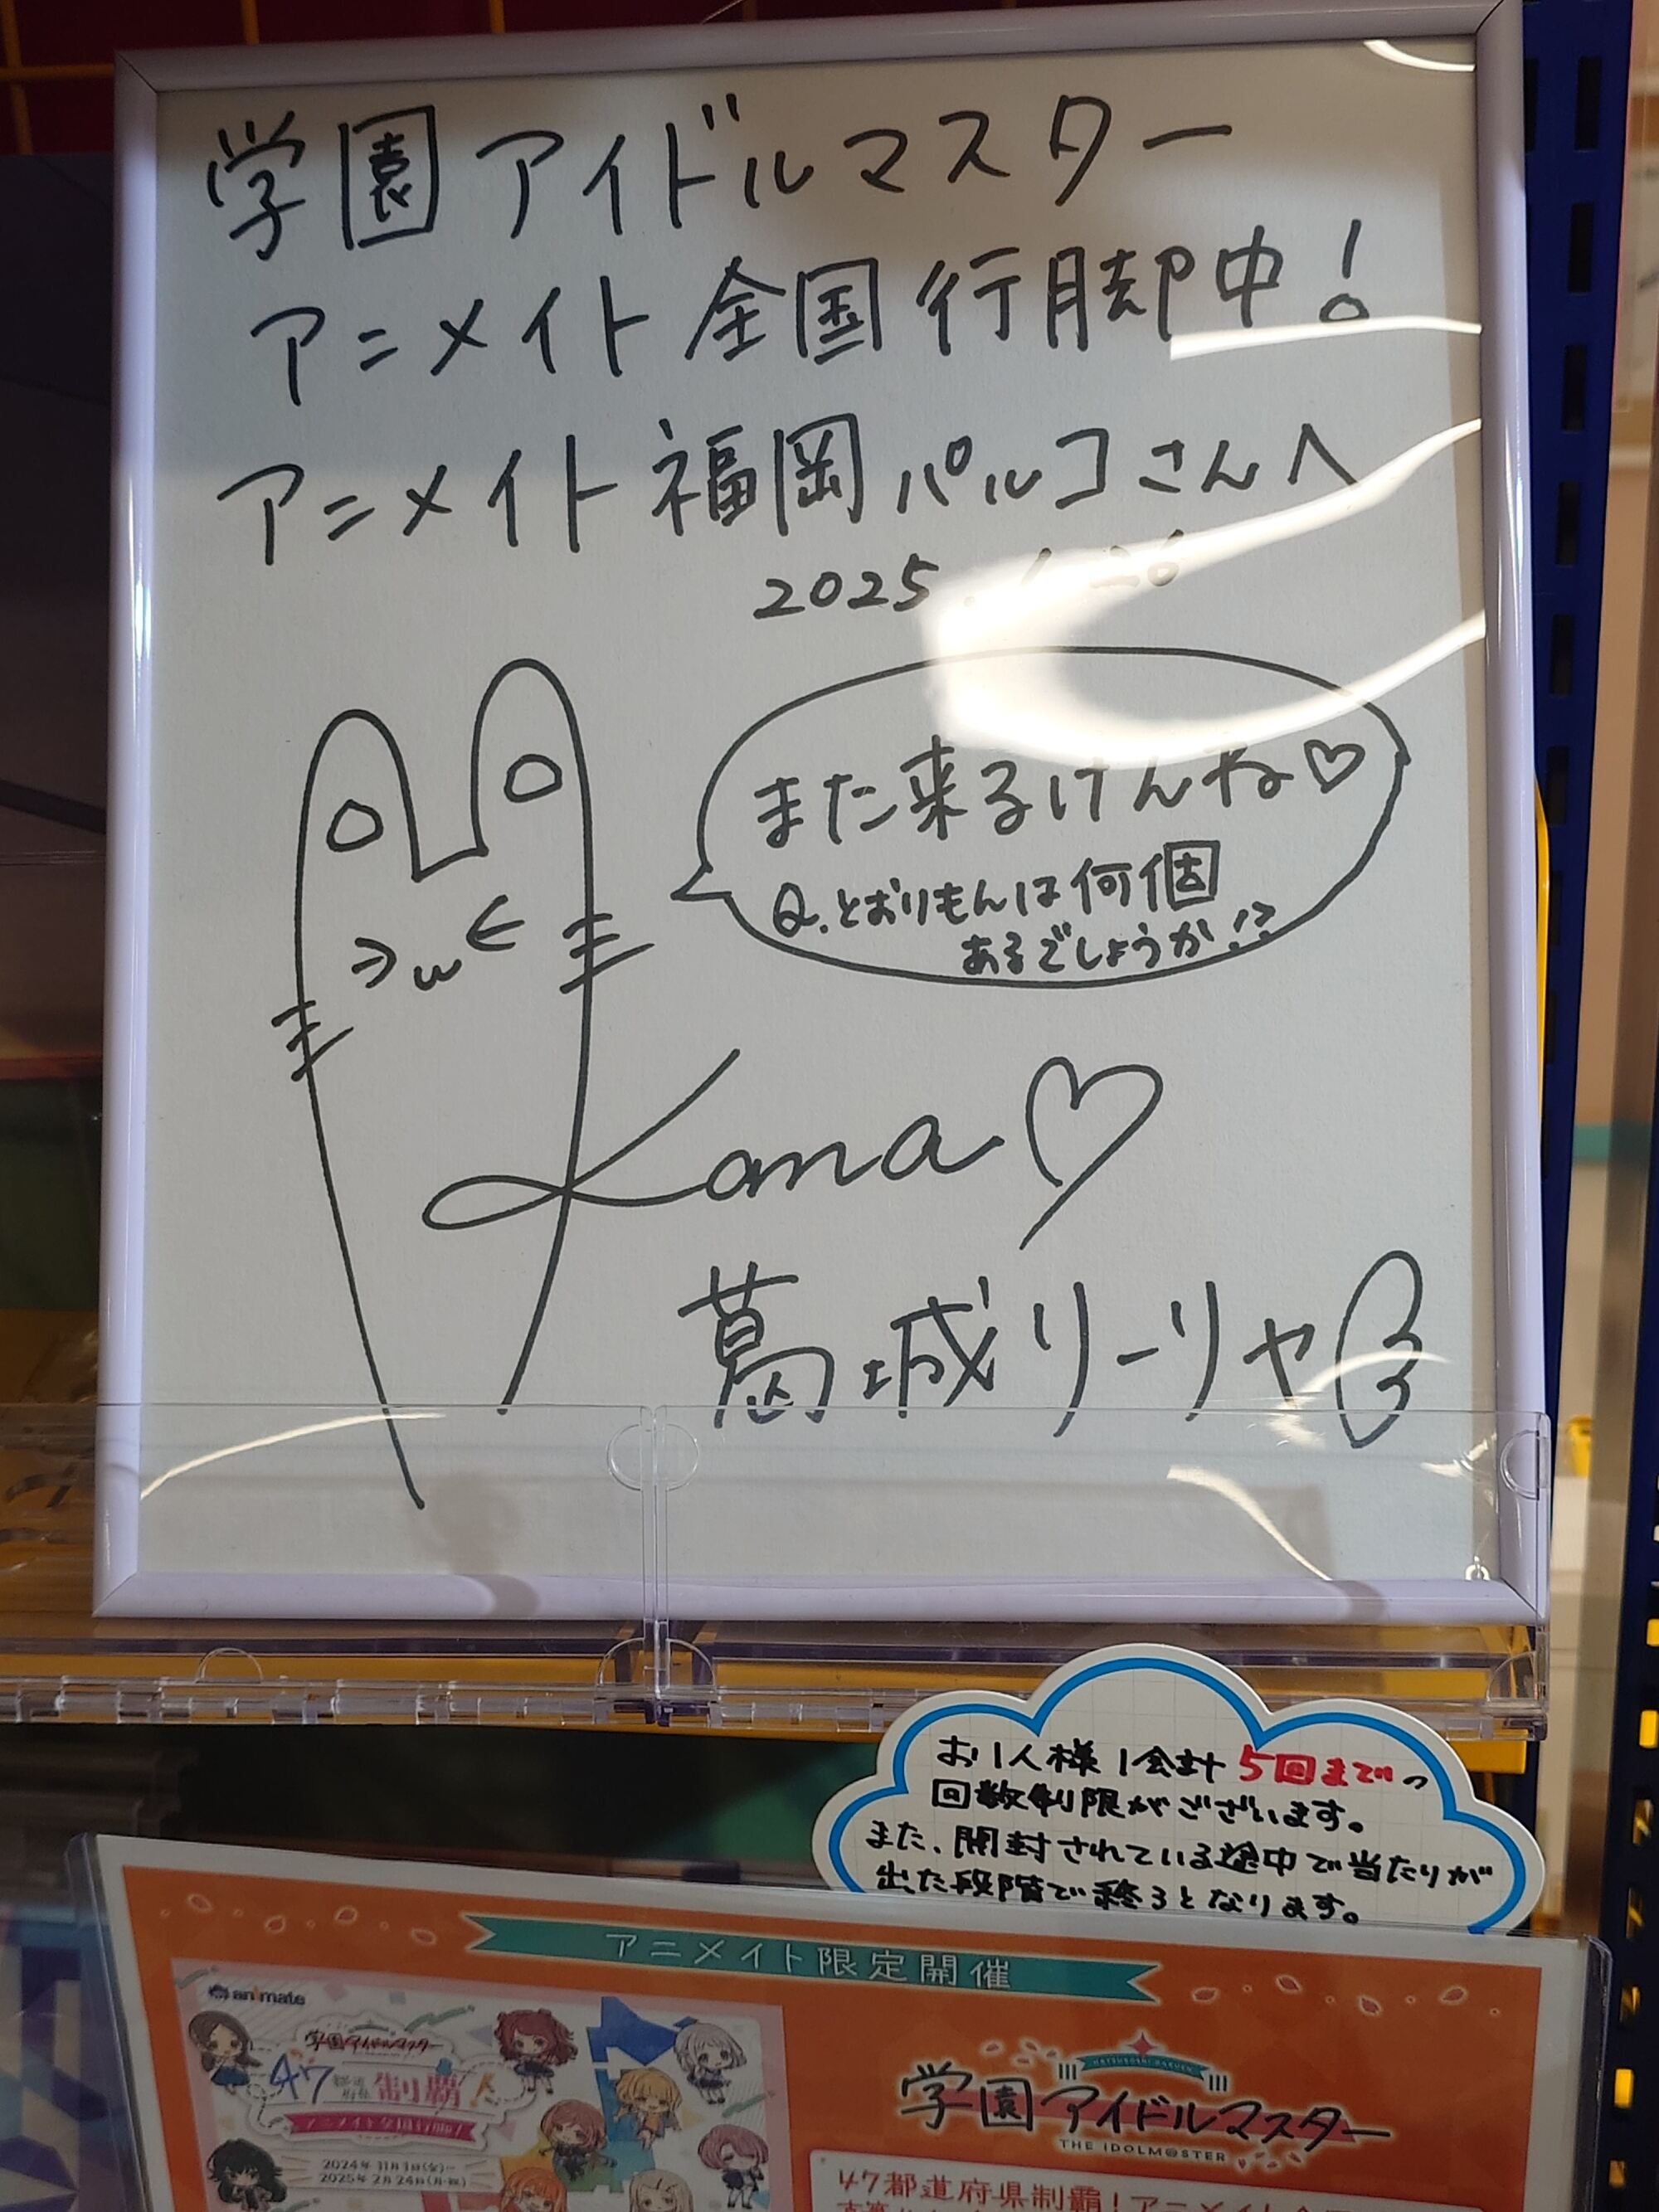 学園アイドルマスター
アニメイト全国行脚中!
アニメイト福岡パルコさんへ
2025.1.26
また来るけんね♡
Q.とおりもんは何個
あるでしょうか!?
Kana♡
葛城リーリヤ
お1人様1会計5回までの
回数制限がございます。
また、開封されている途中で当たりが
出た段階で終了となります。
アニメイト限定開催
animate
学園アイドルマスター
47都道府県制覇
アニメイト全国行脚!
2024年11月1日(金)~
2025年2月24日(月・祝)
学園アイドルマスター
THE IDOLM@STER
47都道府県制覇!アニメイト全